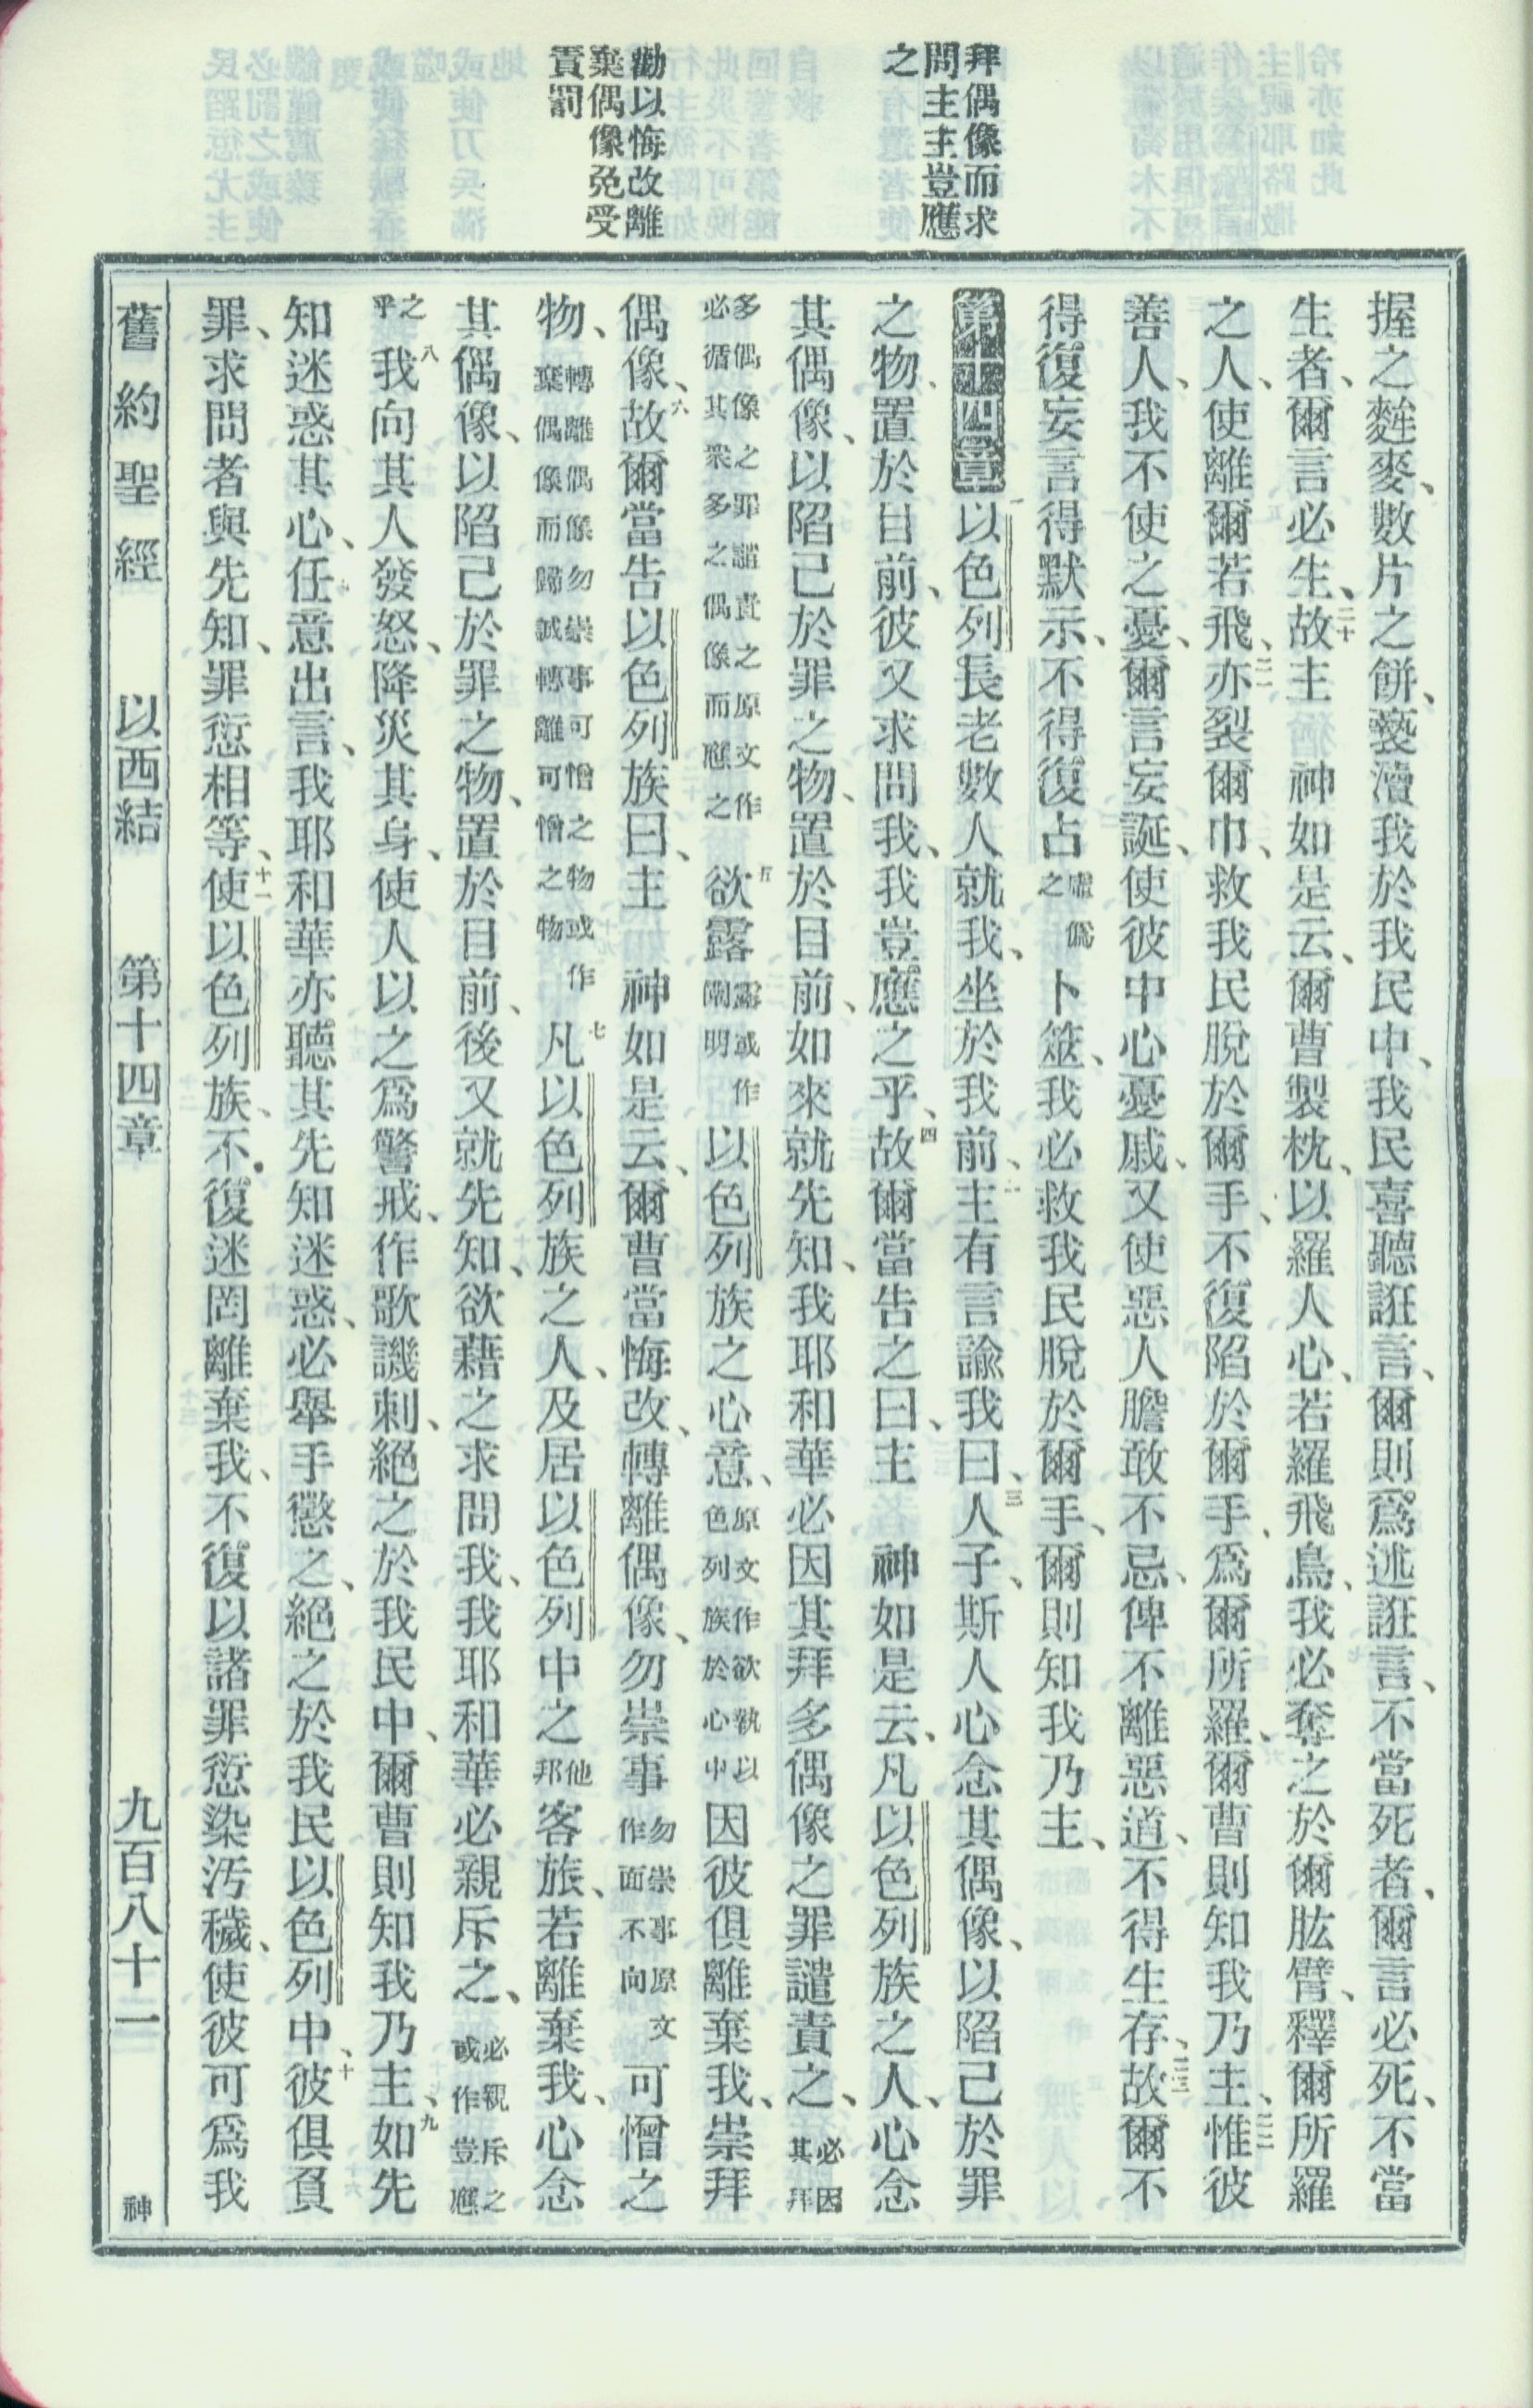 拜偶像而求
問主主豈應
之
勸以悔改離
棄偶像免受
責罰
握之麰麥、數片之餅、褻瀆我於我民中、我民喜聽誑言、爾則爲述誑言、不當死者、爾言必死、不當
生者、爾言必生、二十故主 神如是云、爾曹製枕、以羅人心、若羅飛鳥、我必奪之於爾肱臂、釋爾所羅
之人、使離爾若飛、二一亦裂爾巾、救我民脫於爾手、不復陷於爾手、爲爾所羅、爾曹則知我乃主、二二惟彼
善人、我不使之憂、爾言妄誕、使彼中心憂戚、又使惡人膽敢不忌、俾不離惡道、不得生存、二三故爾不
得復妄言得默示、不得復占虛僞之卜筮、我必救我民脫於爾手、爾則知我乃主、
第十四章 一以色列長老數人就我、坐於我前、二主有言諭我曰、三人子、斯人心念其偶像、以陷己於罪
之物、置於目前、彼又求問我、我豈應之乎、四故爾當告之曰、主 神如是云、凡以色列族之人、心念
其偶像、以陷己於罪之物、置於目前、如來就先知、我耶和華必因其拜多偶像之罪譴責之、必因其拜
多偶像之罪譴責之原文作必循其衆多之偶像而應之 五欲露露或作闡明以色列族之心意、原文作欲執以色列族於心中因彼俱離棄我、崇拜
偶像、六故爾當告以色列族曰、主 神如是云、爾曹當悔改、轉離偶像、勿崇事勿崇事原文作面不向可憎之
物、轉離偶像勿崇事可憎之物或作棄偶像而歸誠轉離可憎之物 七凡以色列族之人、及居以色列中之他邦客旅、若離棄我、心念
其偶像、以陷己於罪之物、置於目前、後又就先知、欲藉之求問我、我耶和華必親斥之、必親斥之或作豈應
之乎 八我向其人發怒、降災其身、使人以之爲警戒、作歌譏刺、絕之於我民中、爾曹則知我乃主、九如先
知迷惑其心、任意出言、我耶和華亦聽其先知迷惑、必舉手懲之、絕之於我民以色列中、十彼俱負
罪、求問者與先知、罪愆相等、十一使以色列族、不復迷罔離棄我、不復以諸罪愆染汚穢、使彼可爲我
舊約聖經 以西結 第十四章 九百八十一 神